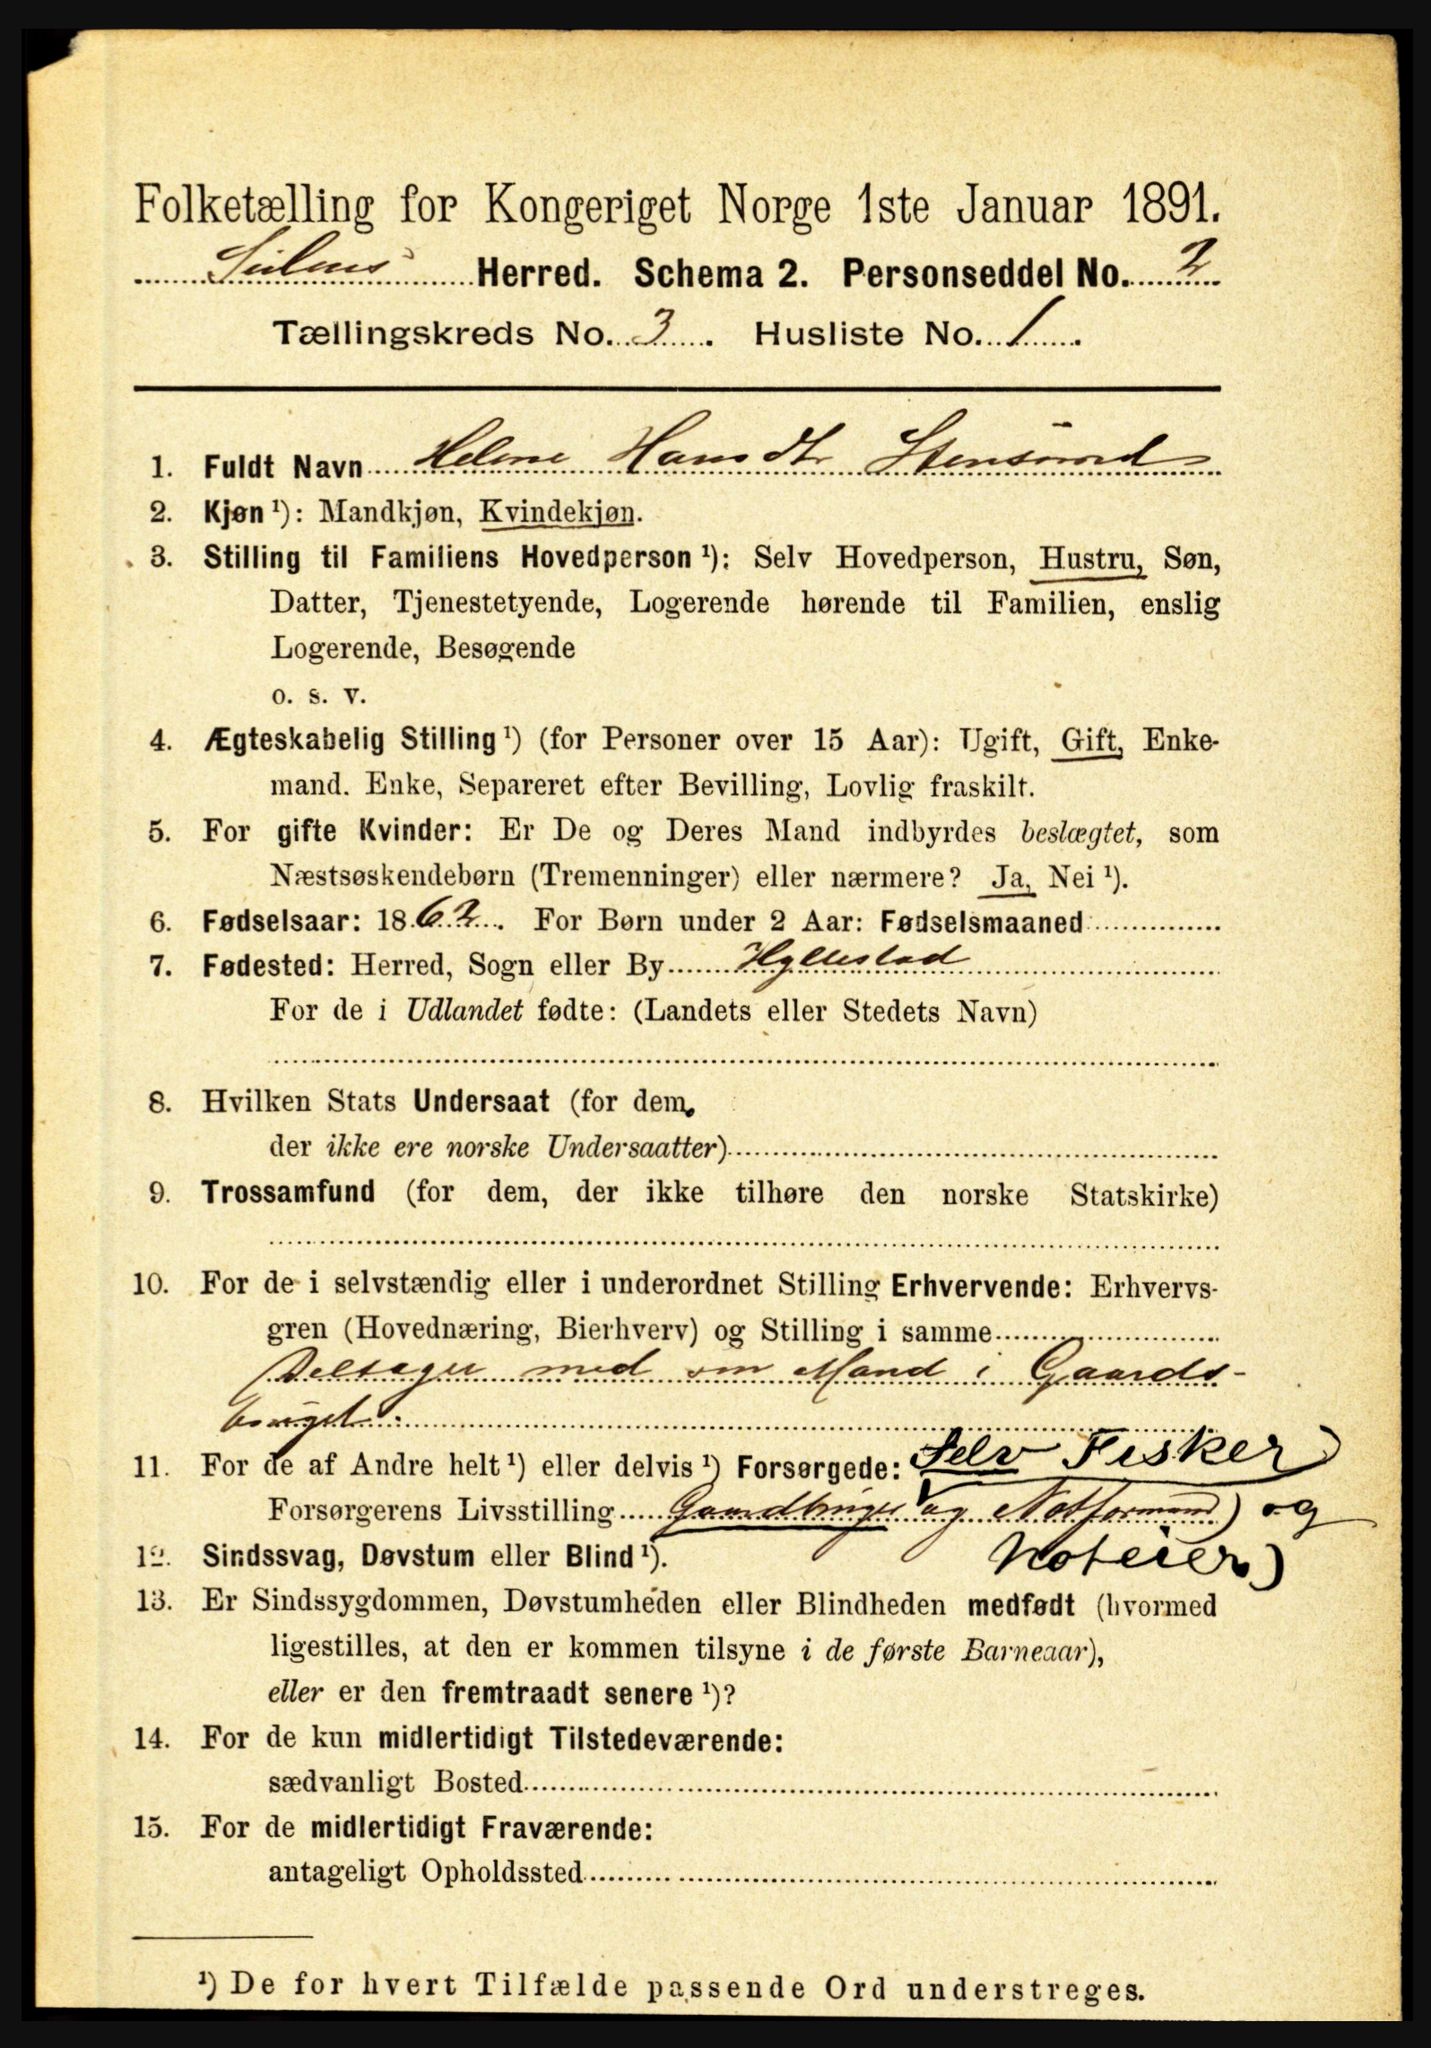 Folketælling for Kongeriget Norge 1ste Januar 1891.
Herred. Schema 2. Personseddel No. 2
Tællingskreds No. 3. Husliste No. 1.
1. Fuldt Navn Helene Hansdtr Stensund
2. Kjøn ¹): Mandkjøn, Kvindekjøn.
3. Stilling til Familiens Hovedperson ¹): Selv Hovedperson, Hustru, Søn,
Datter, Tjenestetyende, Logerende hørende til Familien, enslig
Logerende, Besøgende
o. s. v.
4. Ægteskabelig Stilling ¹) (for Personer over 15 Aar): Ugift, Gift, Enke-
mand. Enke, Separeret efter Bevilling, Lovlig fraskilt.
5. For gifte Kvinder: Er De og Deres Mand indbyrdes beslægtet, som
Næstsøskendebørn (Tremenninger) eller nærmere? Ja, Nei ¹).
6. Fødselsaar: 1862. For Børn under 2 Aar: Fødselsmaaned
7. Fødested: Herred, Sogn eller By Hyllestad
For de i Udlandet fødte: (Landets eller Stedets Navn)
8. Hvilken Stats Undersaat (for dem,
der ikke ere norske Undersaatter)
9. Trossamfund (for dem, der ikke tilhøre den norske Statskirke)
10. For de i selvstændig eller i underordnet Stilling Erhvervende: Erhvervs-
gren (Hovednæring, Bierhverv) og Stilling i samme
Deltager med sin Mand i Gaards-
bruget.
11. For de af Andre helt ¹) eller delvis ¹) Forsørgede: Selv Fisker
Forsørgerens Livsstilling Gaardbruger og Notformand) og
Noteier)
12. Sindssvag, Døvstum eller Blind ¹).
13. Er Sindssygdommen, Døvstumheden eller Blindheden medfødt (hvormed
ligestilles, at den er kommen tilsyne i de første Barneaar),
eller er den fremtraadt senere ¹)?
14. For de kun midlertidigt Tilstedeværende:
sædvanligt Bosted
15. For de midlertidigt Fraværende:
antageligt Opholdssted
¹) De for hvert Tilfælde passende Ord understreges.